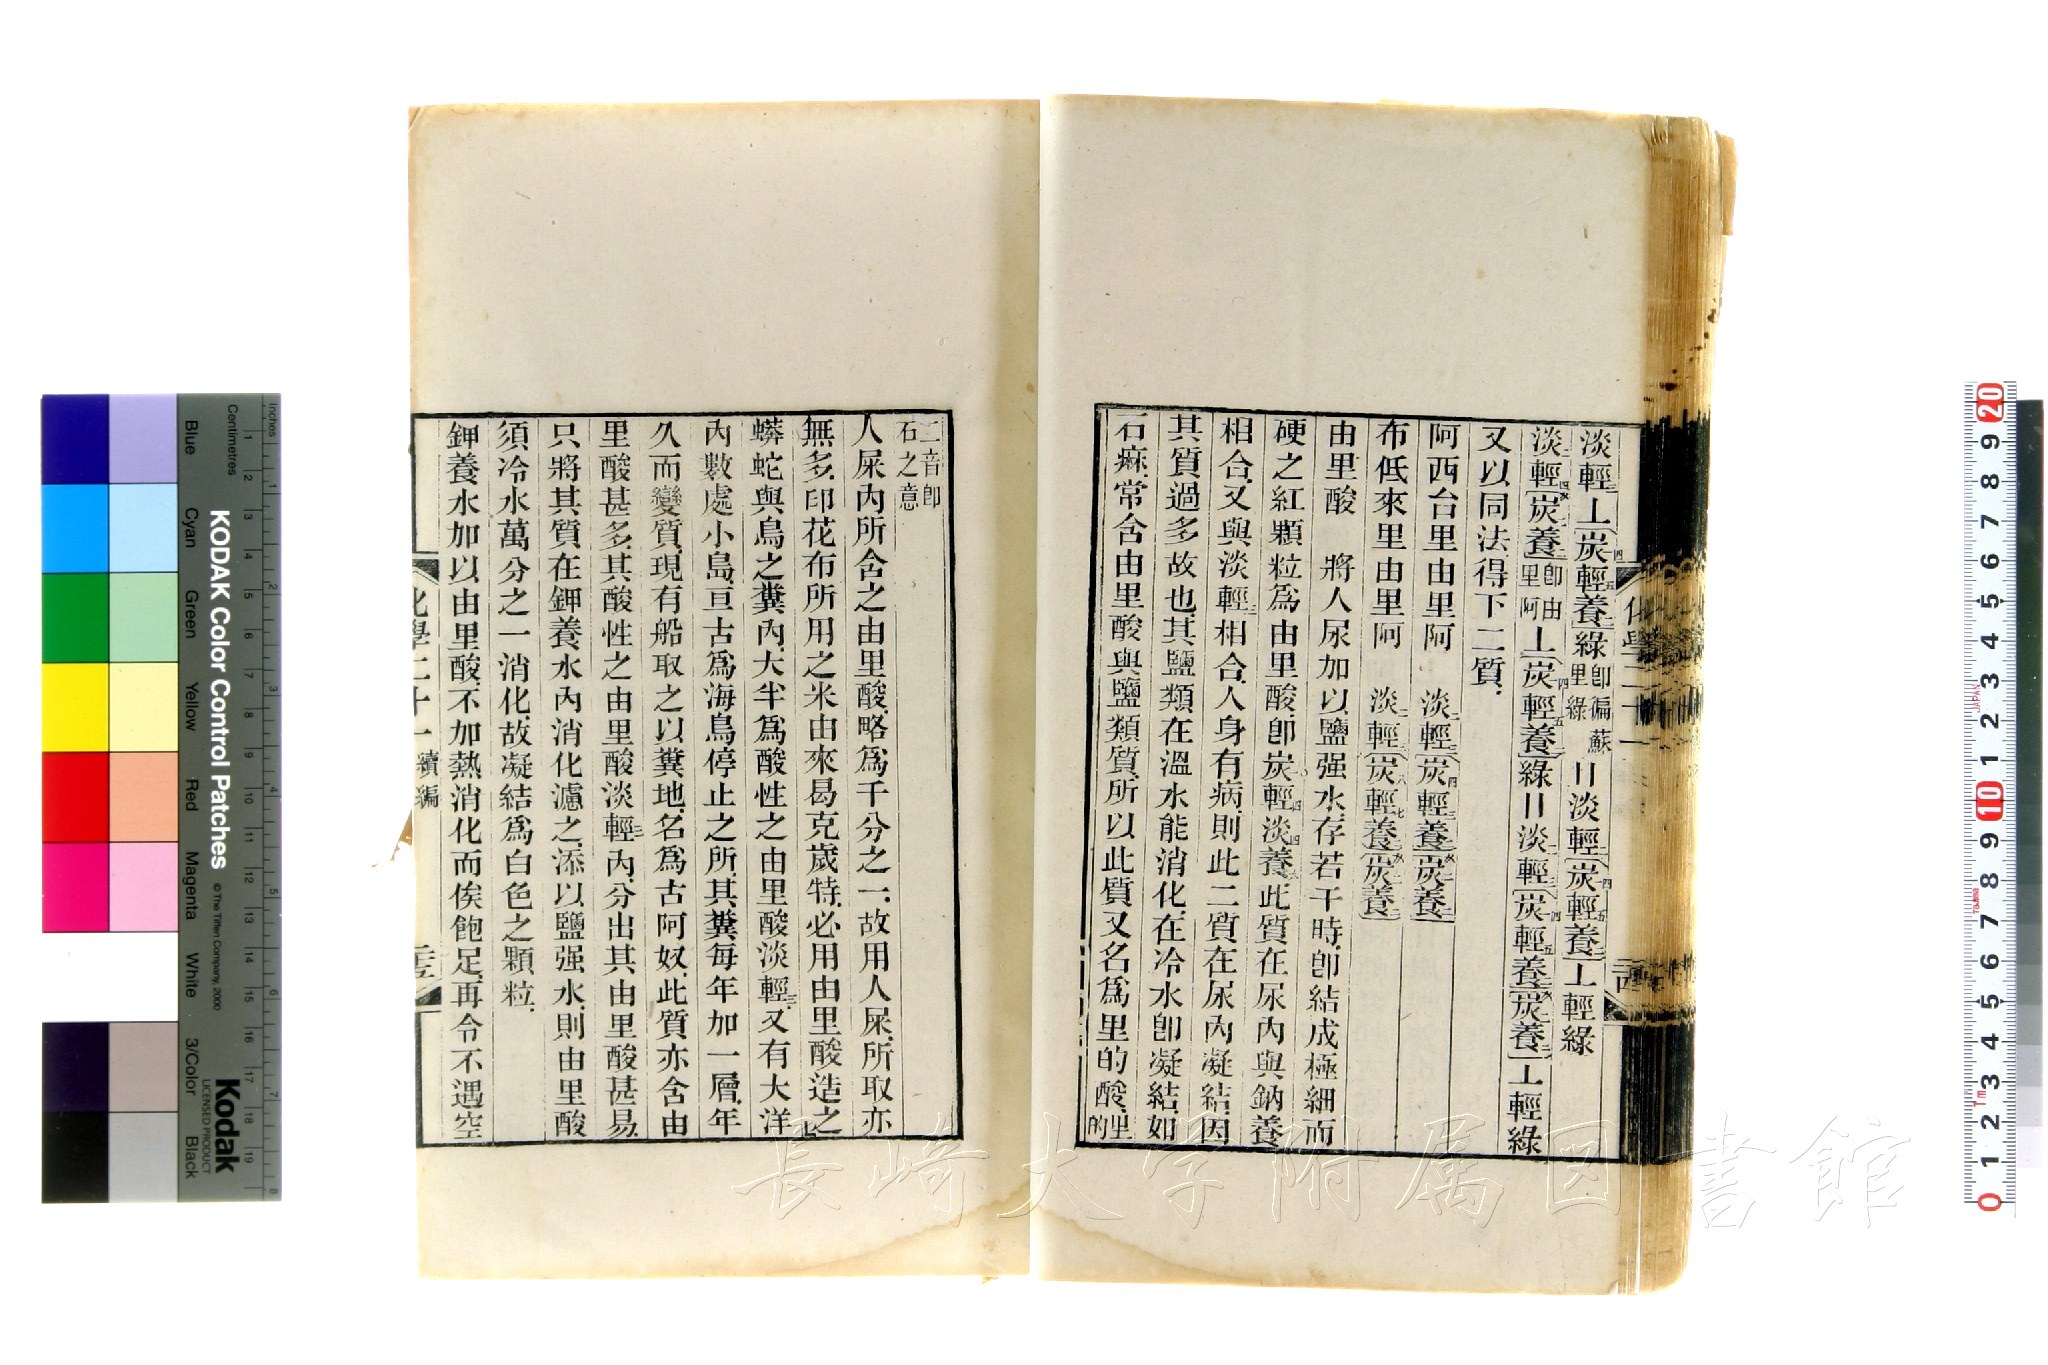 淡輕三丄(炭四輕五養二)綠即偏蘇里綠〢淡輕二(炭四輕五養二)丄輕綠
淡輕二(炭養)二即由里阿丄(炭四輕五養二)綠〢淡二輕三(炭四輕五養二)(炭養)二丄輕綠
又以同法得下二質
阿西台里由里阿 淡二輕三(炭四輕三養二)(炭養)二
布低來里由里阿 淡二輕三(炭八輕七養二)(炭養)二
由里酸 將人尿加以鹽强水存若干時卽結成極細而
硬之紅顆粒爲由里酸卽炭十輕四淡四養六此質在尿內與鈉養
相合又與淡輕三相合人身有病則此二質在尿內凝結因
其質過多故也其鹽類在溫水能消化在冷水卽凝結如
石痳常含由里酸與鹽類質所以此質又名爲里的酸里的
化學二十一
二音卽石之意
人屎內所含之由里酸略爲千分之一故用人屎所取亦
無多印花布所用之米由來曷克歲特必用由里酸造之
蟒蛇與鳥之糞內大半爲酸性之由里酸淡輕三又有大洋
內數處小島亘古爲海鳥停止之所其糞每年加一層年
久而變質現有船取之以糞地名爲古阿奴此質亦含由
里酸甚多其酸性之由里酸淡輕三內分出其由里酸甚易
只將其質在鉀養水內消化濾之添以鹽强水則由里酸
須冷水萬分之一消化故凝結爲白色之顆粒
鉀養水加以由里酸不加熱消化而俟飽足再令不遇空
化學二十一 續編
長崎大学附属図書館
KODAK Color Control Patches
© The Tiffen Company, 2000
Kodak
LICENSED PRODUCT
Blue Cyan Green Yellow Red Magenta White 3/Color Black
Inches
Centimetres